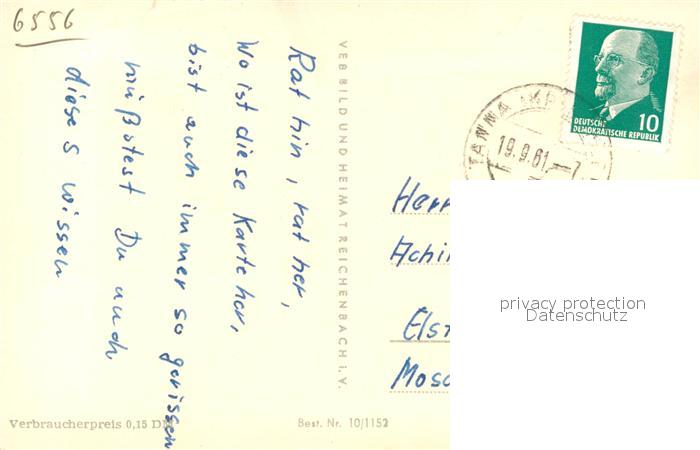 6556
Rat hin, rat her,
Wo ist diese Karte her,
bist auch immer so gerissen
müßtest Du auch
dieses wissen
VEB BILD UND HEIMAT REICHENBACH i. V.
DEUTSCHE
DEMOKRATISCHE REPUBLIK
10
TANNA
19.9.61
Herr
Achi
Els
Mos
privacy protection
Datenschutz
Verbraucherpreis 0,15 DM
Best. Nr. 10/1152